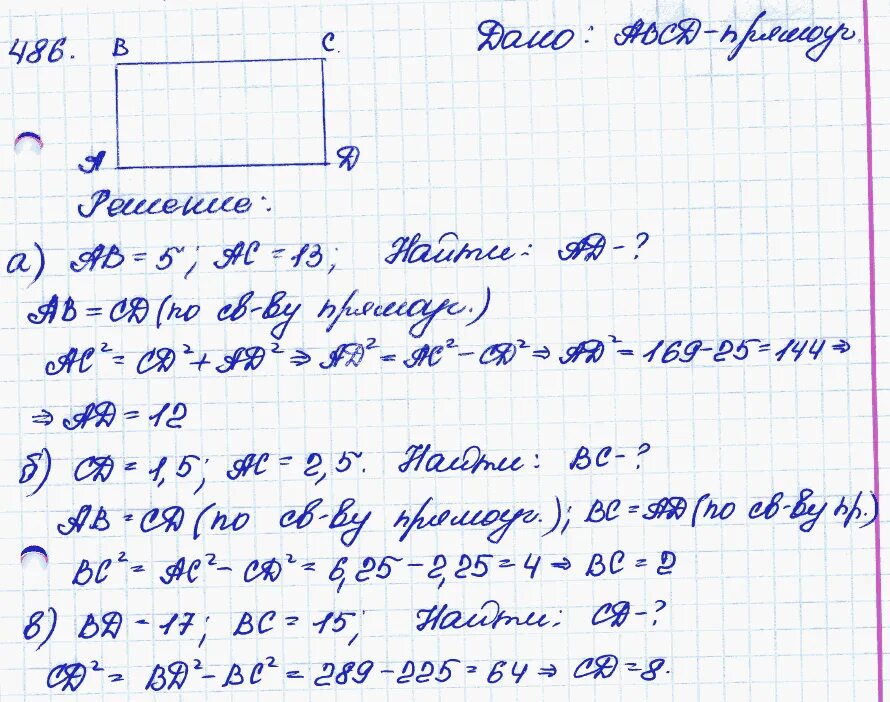 486. B C. Дано: ABCD-прямоуг.
A D
Решение:
а) AB = 5; AC = 13; Найти: AD-?
AB = CD (по св-ву прямоуг.)
AC² = CD² + AD² ⇒ AD² = AC² - CD² ⇒ AD² = 169-25=144 ⇒
⇒ AD = 12
б) CD = 1,5; AC = 2,5. Найти: BC-?
AB = CD (по св-ву прямоуг.); BC = AD (по св-ву пр.)
BC² = AC² - CD² = 6,25 - 2,25 = 4 ⇒ BC = 2
в) BD - 17; BC = 15; Найти: CD-?
CD² = BD² - BC² = 289 - 225 = 64 ⇒ CD = 8.